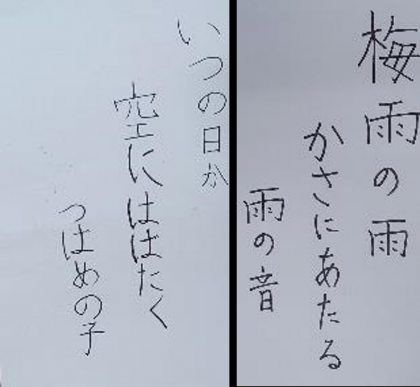 梅雨の雨
かさにあたる
雨の音
いつの日か
空にはばたく
つばめの子